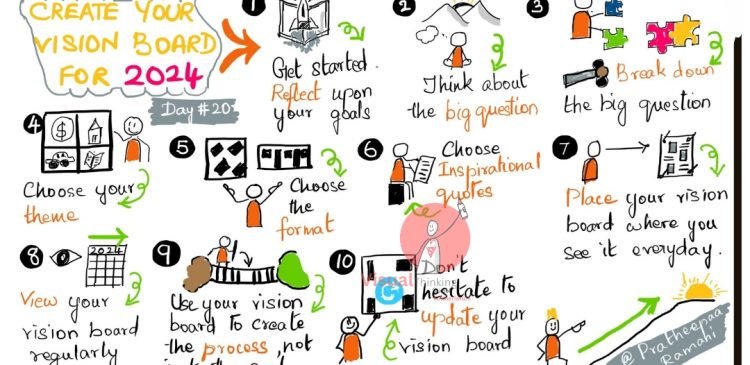 CREATE YOUR
VISION BOARD
FOR 2024
Day #20
1
Get started.
Reflect upon
your goals
2
Think about
the big question
3
Break down
the big question
4
$
Choose your
theme
5
Choose
the
format
6
Choose
Inspirational
quotes
7
Place your vision
board where you
see it everyday.
8
2024
View your
vision board
regularly
9
Use your vision
board to create
the process, not
10
Don't
hesitate to
update your
vision board
Visual
Thinking
@ Pratheepaa
Ramahi